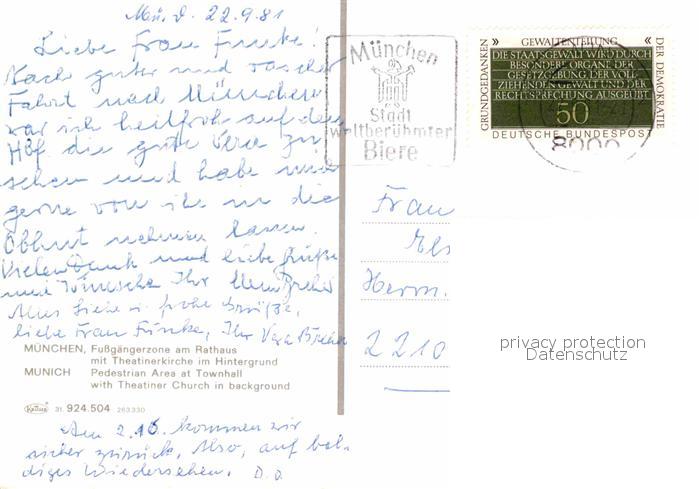 Mü. d. 22.9.81
Liebe Frau Funke!
Nach guter und rascher
Fahrt nach München
war ich heilfroh auf dem
Hbf. die gute Vera zu
sehen und habe mich
gerne von ihr in die
Obhut nehmen lassen.
Vielen Dank und liebe Grüße
und Wünsche Ihr
Alles Liebe u. frohe Grüße,
liebe Frau Funke, Ihr Vera
MÜNCHEN, Fußgängerzone am Rathaus
mit Theatinerkirche im Hintergrund
MUNICH Pedestrian Area at Townhall
with Theatiner Church in background
Krüger 31. 924.504 263330
Am 2.10. kommen wir
sicher zurück. Also, auf bal-
diges Wiedersehen. D.O.
München
Stadt
weltberühmter
Biere
» GEWALTENTEILUNG «
GRUNDGEDANKEN
DER DEMOKRATIE
DIE STAATSGEWALT WIRD DURCH
BESONDERE ORGANE DER
GESETZGEBUNG DER VOLL-
ZIEHENDEN GEWALT UND DER
RECHTSPRECHUNG AUSGEÜBT
50
DEUTSCHE BUNDESPOST
8000
Frau
Els
Herrn.
2210
privacy protection
Datenschutz